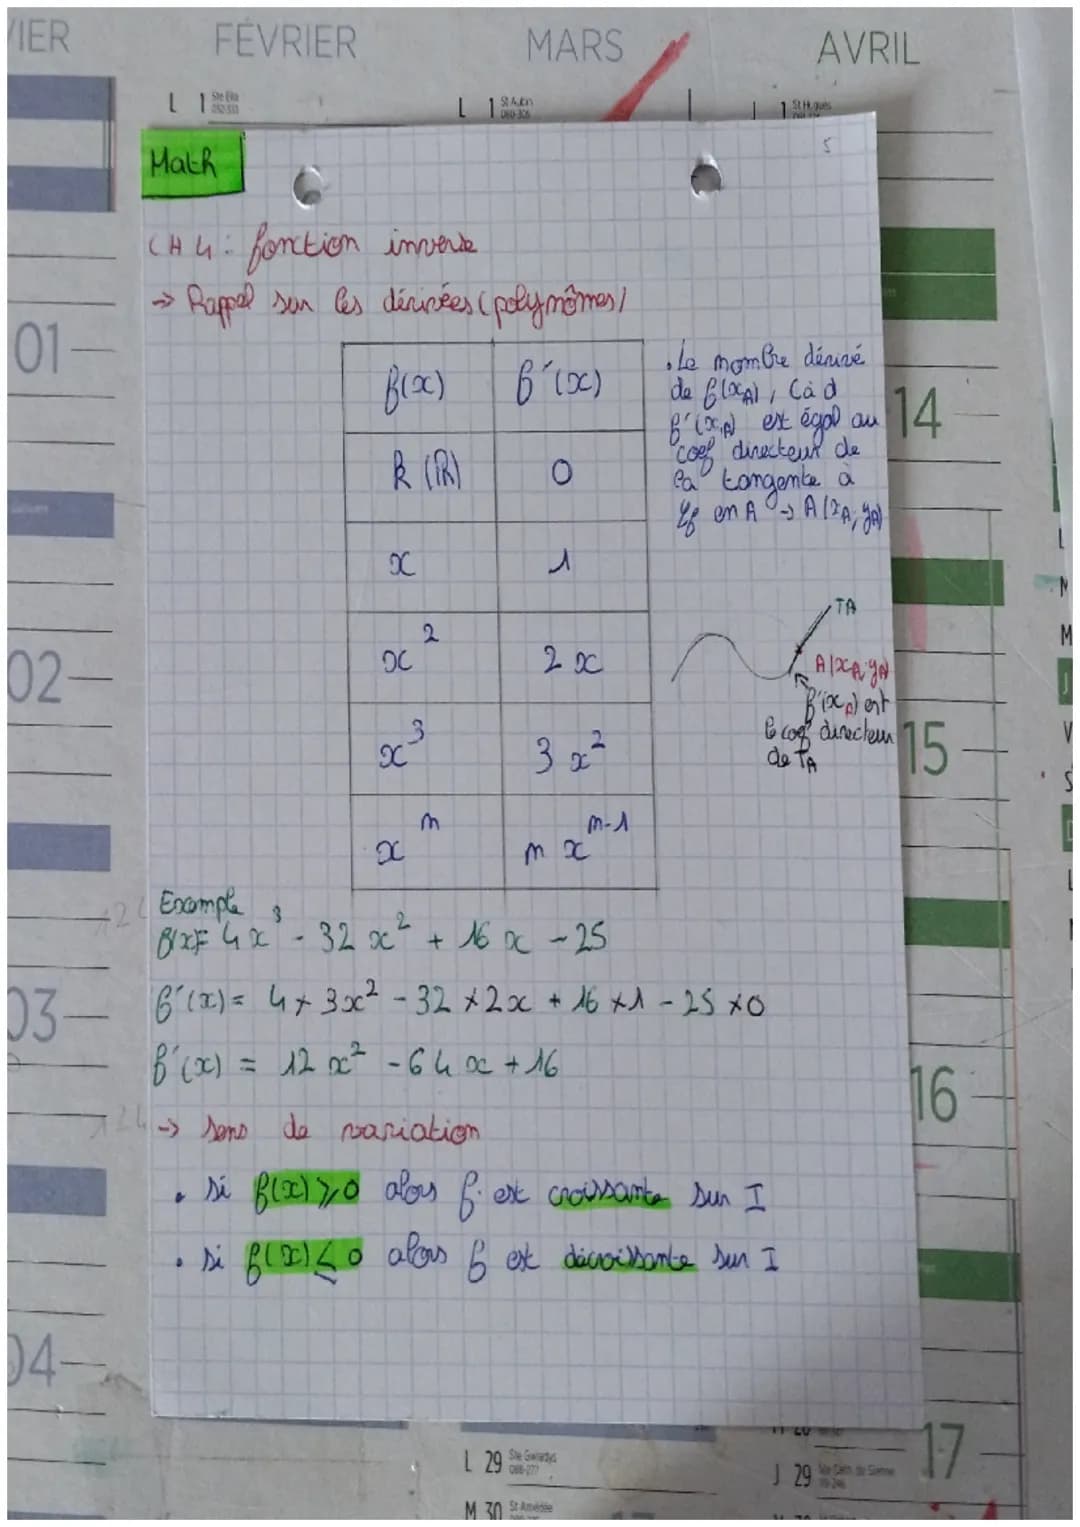 IER
FÉVRIER
MARS
AVRIL
L 1
L 1 St Aubin
1 St Hugues
5
Math
CH 4 : fonction inverse
→ Rappel sur les dérivées (polynômes)
f(x) f'(x)
k (ℝ) 0
x 1
x² 2x
x³ 3x²
xⁿ n xⁿ⁻¹
• Le nombre dérivé
de f(xA), Càd
f'(xA) est égal au
coef directeur de
la tangente à
Cf en A → A(xA; yA)
TA
A(xA; yA)
f'(xA) est
le coef directeur
de TA
Example
f(x)= 4x³ - 32x² + 16x - 25
f'(x)= 4 × 3x² - 32 × 2x + 16 × 1 - 25 × 0
f'(x) = 12x² - 64x + 16
→ sens de variation
• si f(x) ⩾ 0 alors f est croissante sur I
• si f(x) ⩽ 0 alors f est décroissante sur I
01
02
03
04
14
15
16
17
L 29 Ste Gwladys
M 30 St Amédée
J 29